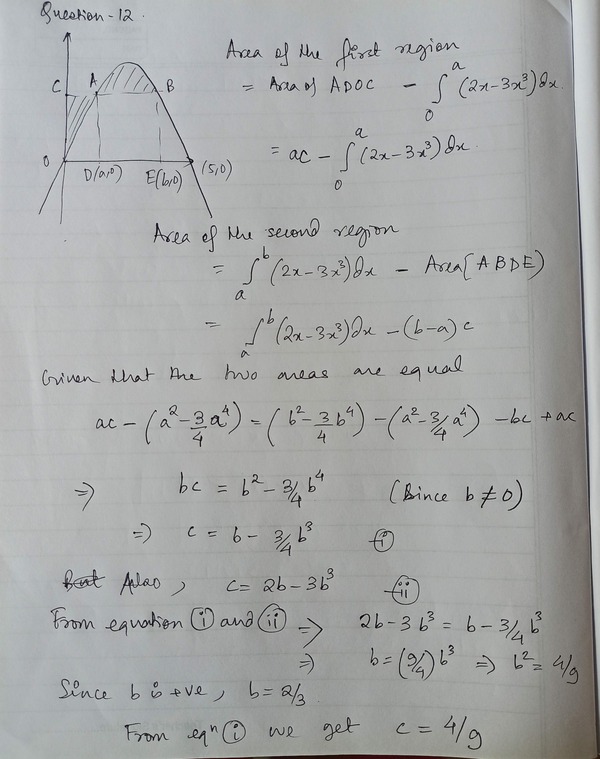 Question - 12.
C A B
O D(a,0) E(b,0) (5,0)
Area of the first region
= Area of ADOC - ∫₀ᵃ (2x-3x³)dx.
= ac - ∫₀ᵃ (2x-3x³)dx.
Area of the second region
= ∫ₐᵇ (2x-3x³)dx - Area(ABDE)
= ∫ₐᵇ (2x-3x³)dx - (b-a)c
Given that the two areas are equal
ac - (a² - 3/4 a⁴) = (b² - 3/4 b⁴) - (a² - 3/4 a⁴) - bc + ac
⇒ bc = b² - 3/4 b⁴ (Since b ≠ 0)
⇒ c = b - 3/4 b³ - (i)
Also, c = 2b - 3b³ - (ii)
From equation (i) and (ii) ⇒ 2b - 3b³ = b - 3/4 b³
⇒ b = (9/4) b³ ⇒ b² = 4/9
Since b is +ve, b = 2/3
From eqⁿ (i) we get c = 4/9